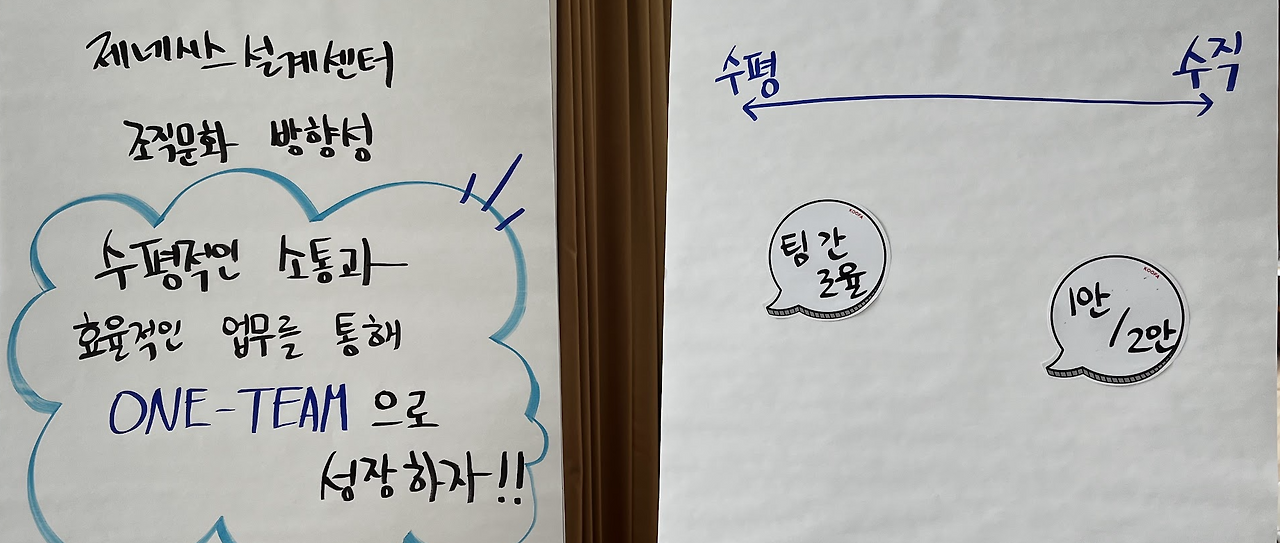 제네시스 설계센터
조직문화 방향성
수평적인 소통과
효율적인 업무를 통해
ONE-TEAM 으로
성장하자!!
수평
수직
KOOFA
팀간
조율
KOOFA
1안
/2안